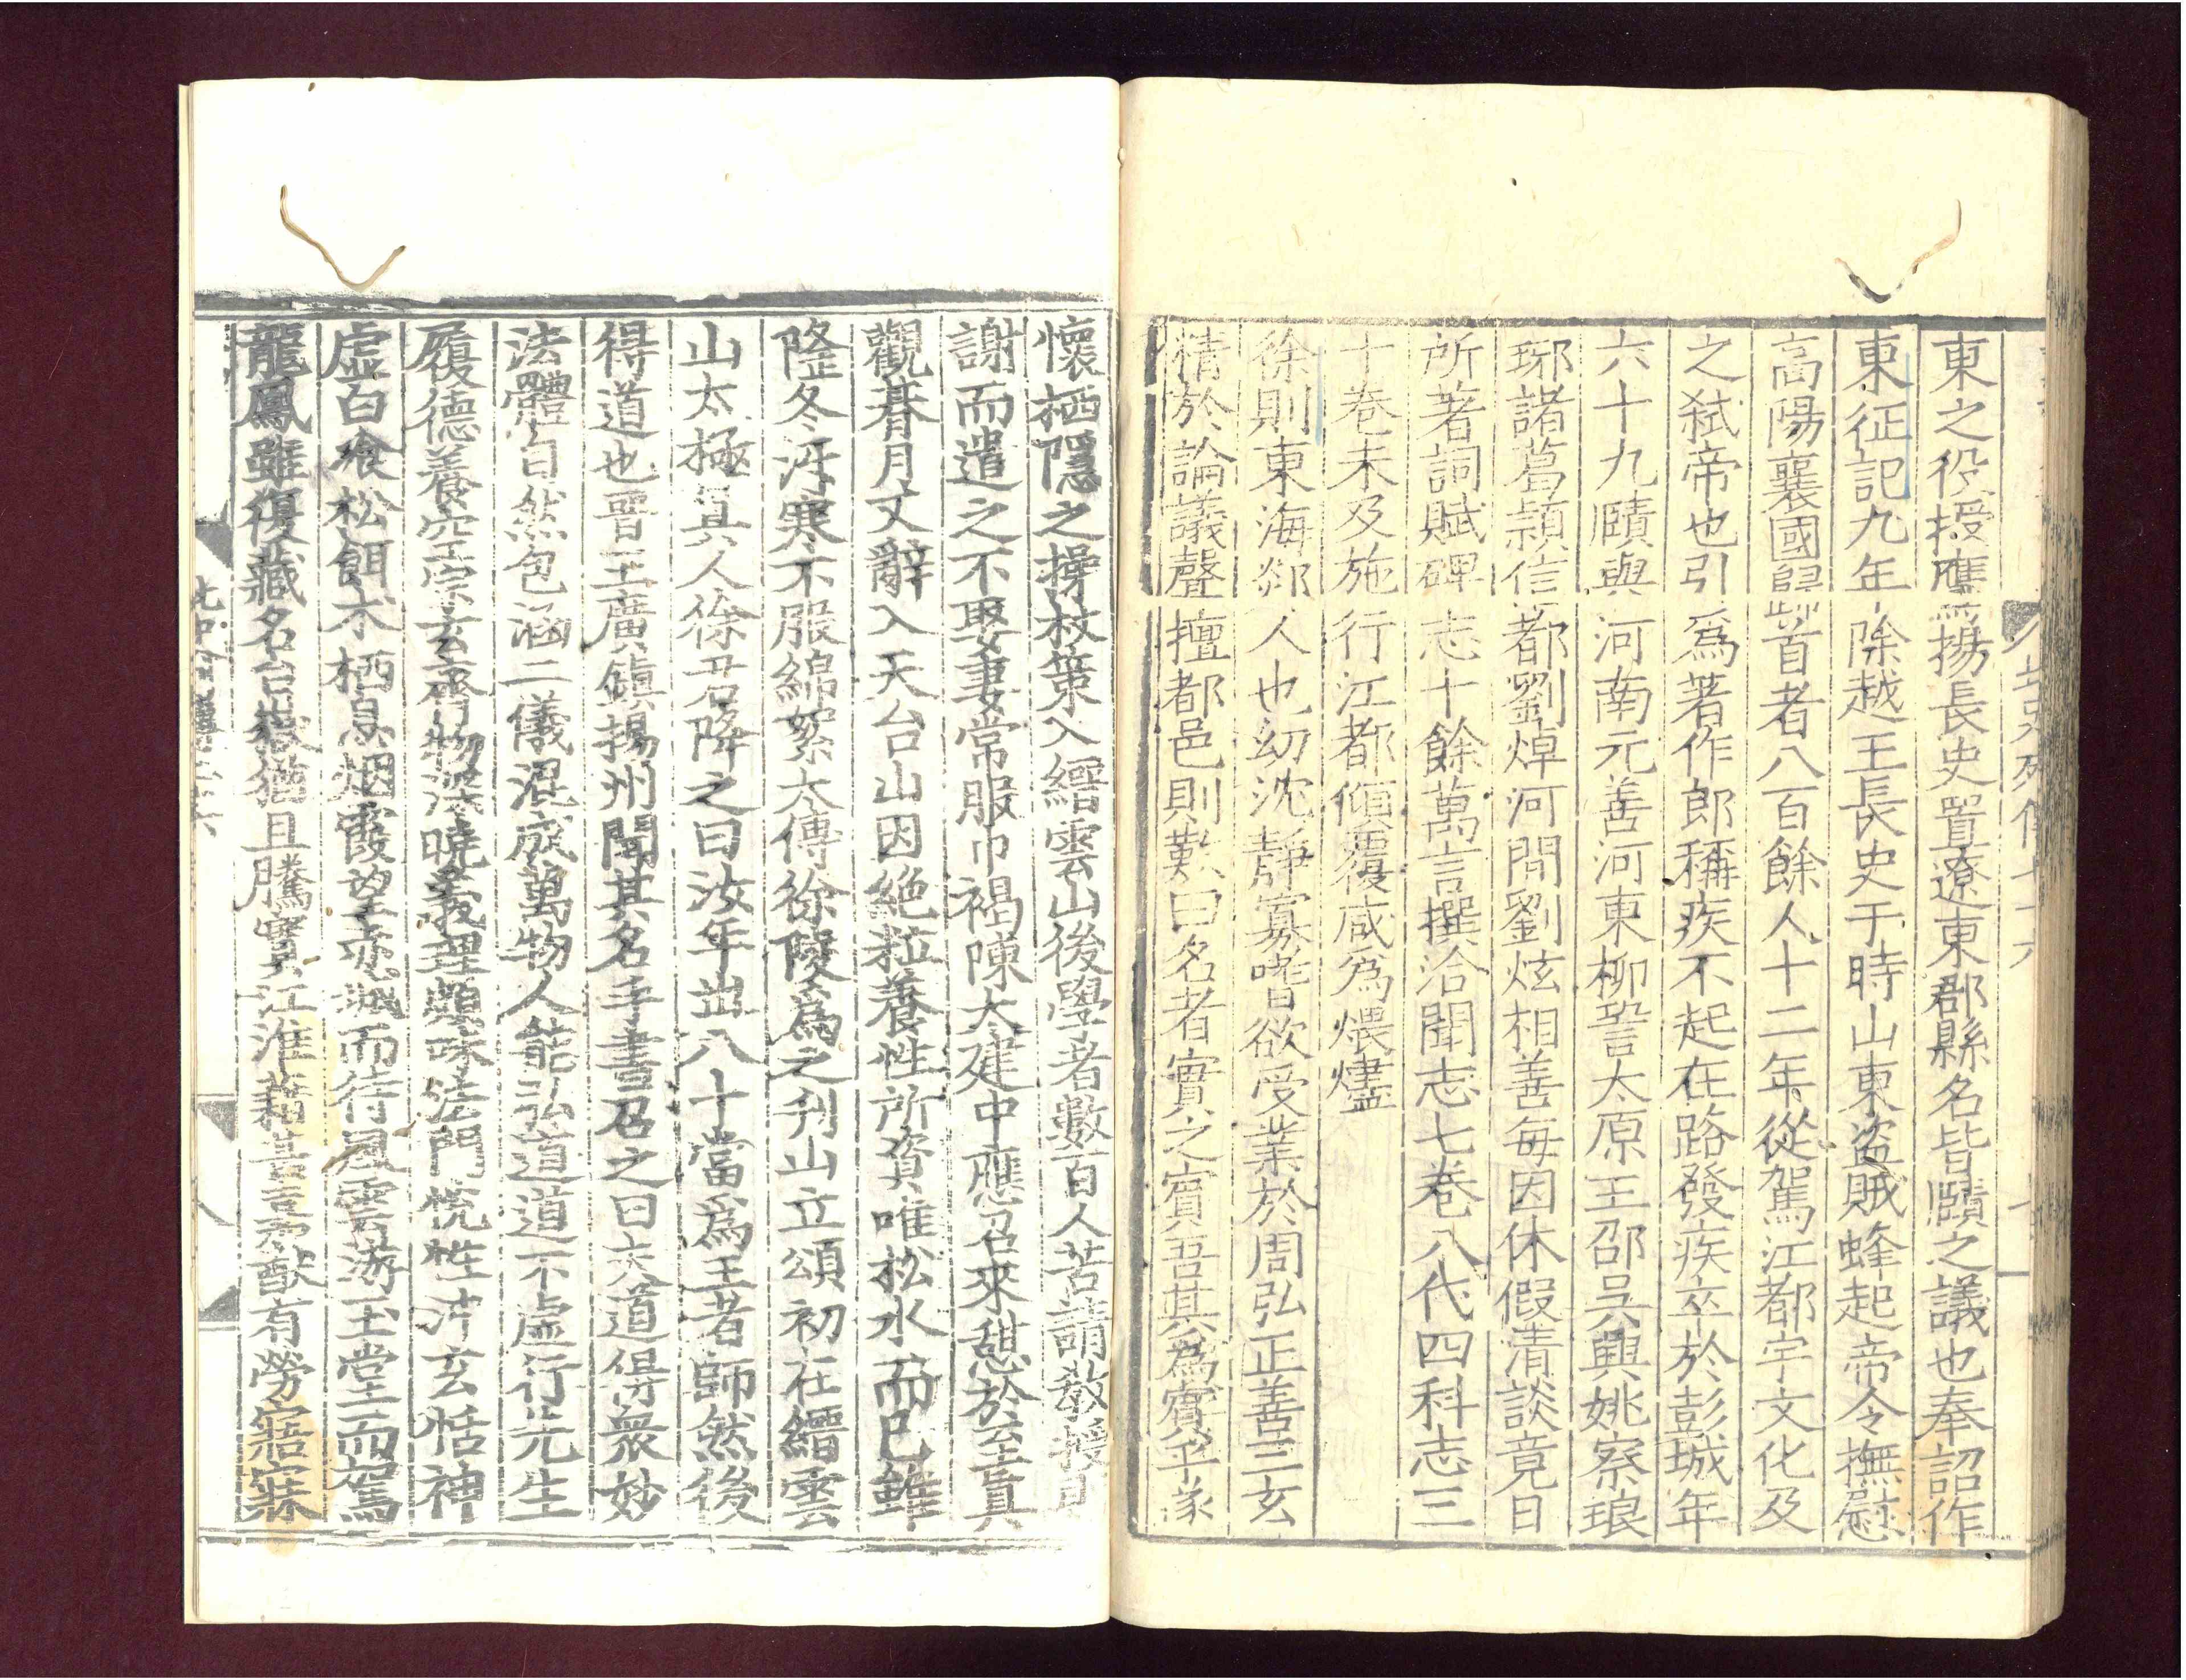 東之役授鷹揚長史置遼東郡縣名皆賾之議也奉詔作
東征記九年除越王長史于時山東盜賊蜂起帝令撫慰
高陽襄國歸首者八百餘人十二年從駕江都宇文化及
之弑帝也引爲著作郎稱疾不起在路發疾卒於彭城年
六十九賾與河南元善河東柳䛒太原王邵吳興姚察琅
琊諸葛潁信都劉焯河間劉炫相善每因休假清談竟日
所著詞賦碑志十餘萬言撰洽聞志七卷八代四科志三
十卷未及施行江都傾覆咸爲煨燼
徐則東海郯人也幼沈靜寡嗜欲受業於周弘正善三玄
精於論議聲擅都邑則歎曰名者實之賓吾其爲賓乎遂
懷栖隱之操杖策入縉雲山後學者數百人苦請教授則
謝而遣之不娶妻常服巾褐陳太建中應召來憩於至眞
觀朞月又辭入天台山因絶粒養性所資唯松水而已雖
隆冬沍寒不服綿絮太傅徐陵爲之刋山立頌初在縉雲
山太極眞人徐君降之曰汝年出八十當爲王者師然後
得道也晉王廣鎭揚州聞其名手書召之曰夫道得衆妙
法體自然包涵二儀混成萬物人能弘道道不虛行先生
履德養空宗玄齊物深曉義理頗味法門恱性冲玄恬神
虛白飡松餌术栖息烟霞望赤城而待風雲游玉堂而駕
龍鳳雖復藏名台嶽猶且騰實江淮藉甚嘉猷有勞寤寐